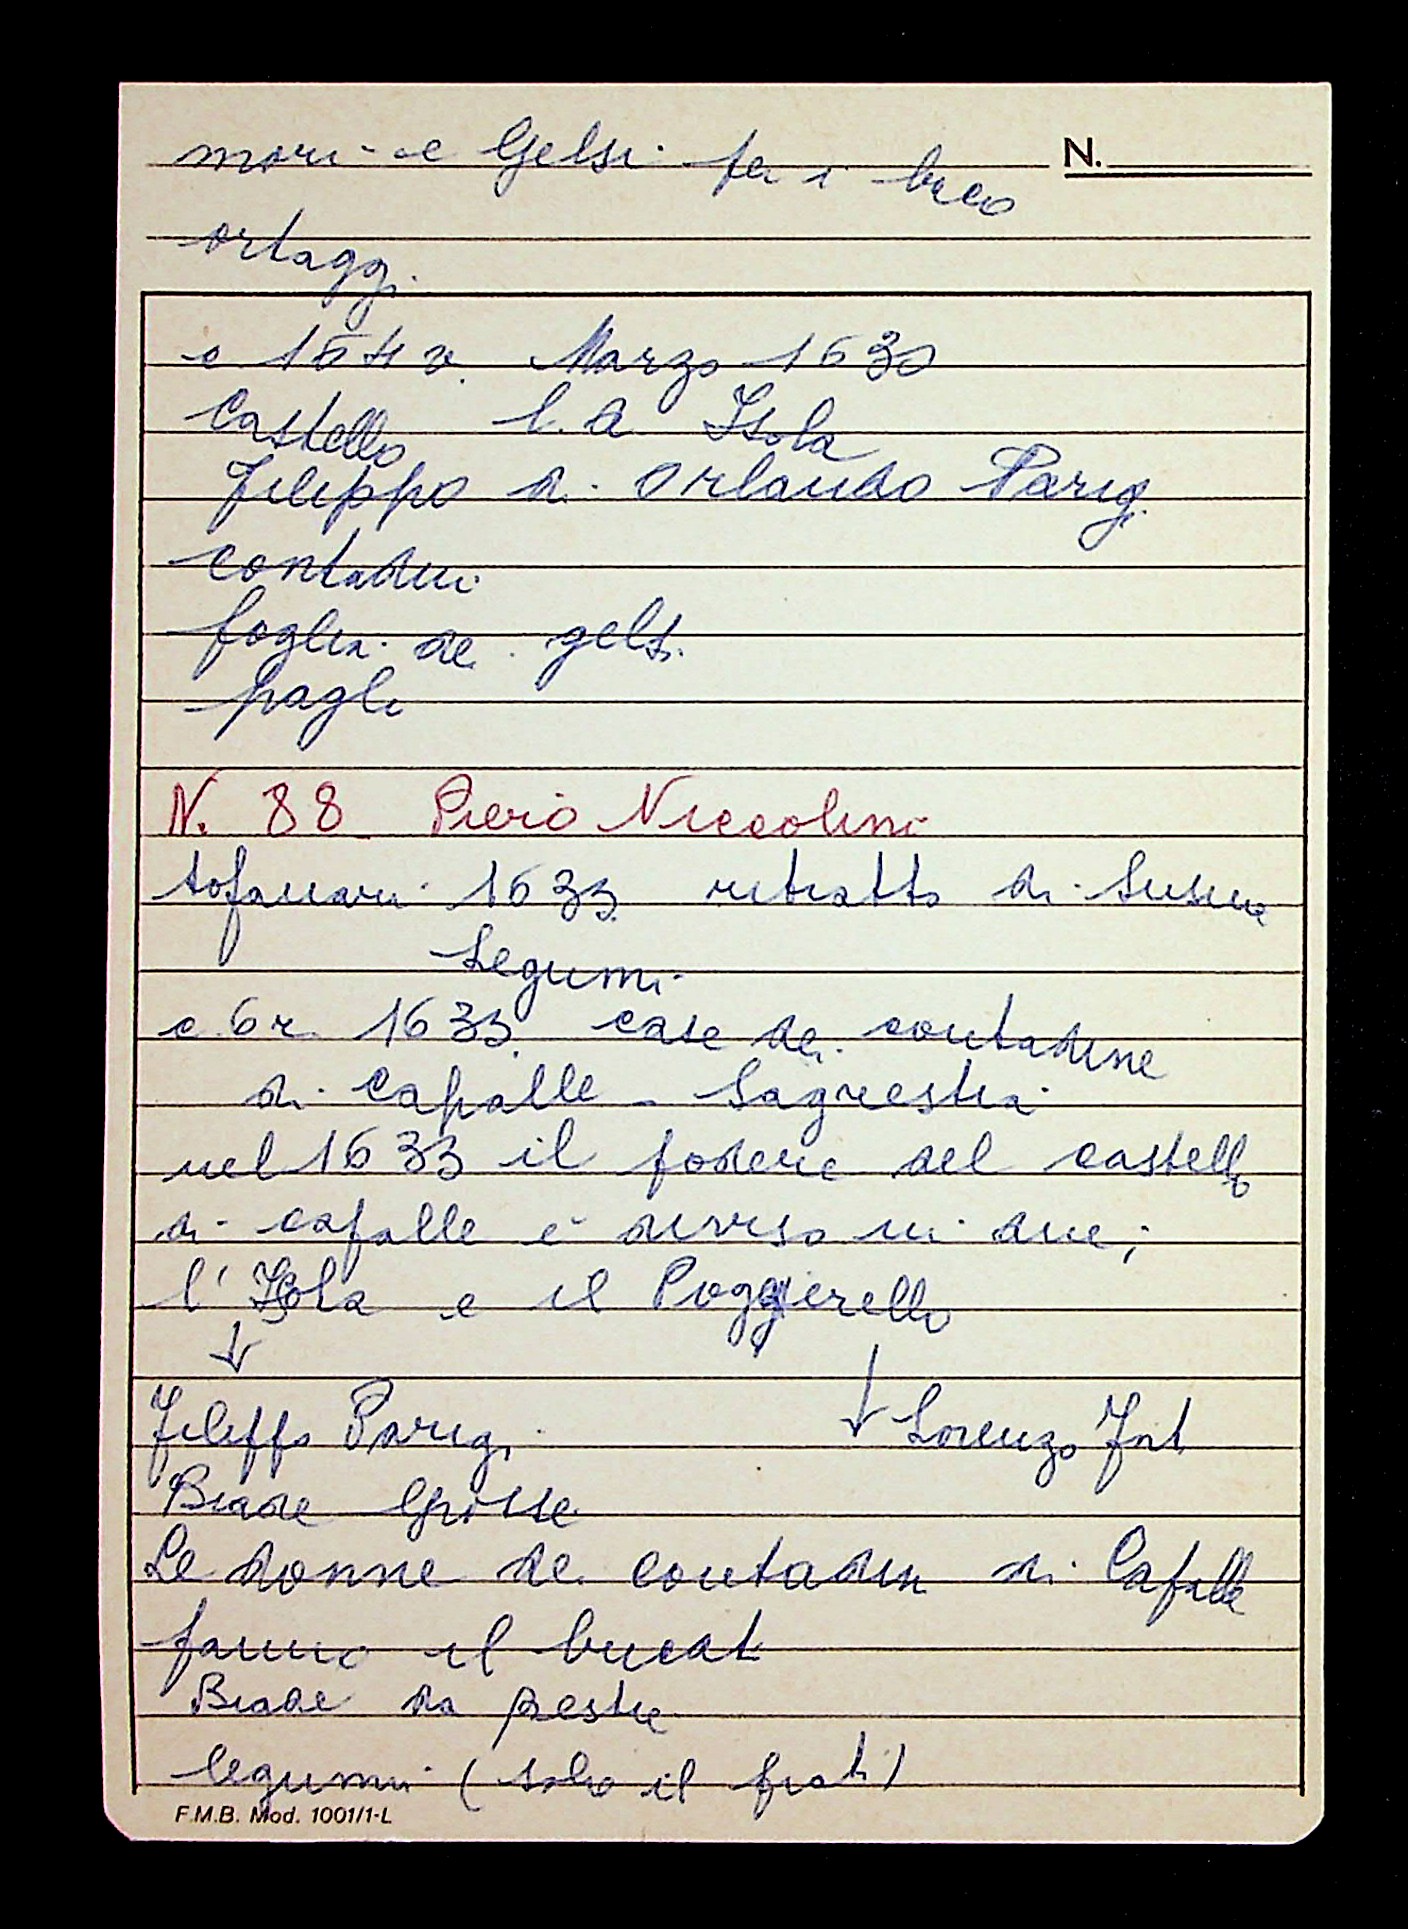 mori e Gelsi per i baco N.
ortaggi
c 164 v. Marzo 1630
Castello l.d Isola
Filippo di Orlando Parigi
contadini
foglia de gelsi
pagli
N. 88 Piero Niccolini
1633 ritratto di Susine
Legumi
c 6 r. 1633. case dei contadine
di Capalle - Sagrestia
nel 1633 il podere del castello
di capalle è diviso in due;
l'Isola e il Poggerello
Filippo Parigi Lorenzo Fort
Biade Grosse
Le donne de contadin di Capalle
fanno il bucat
Biade da bestie
legumi (solo il frati)
F.M.B. Mod. 1001/1-L